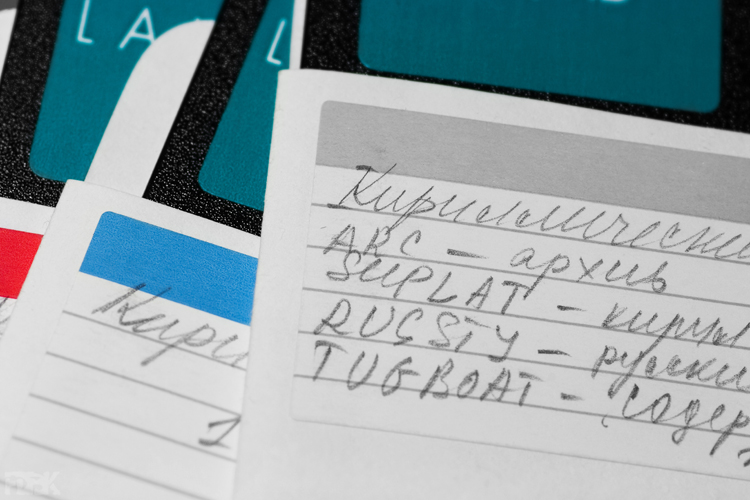 LA
L
Кириллически
ARC — архив
SUPLAT — кирил
RUGSTY — русски
TUGBOAT — содер
Кири
1